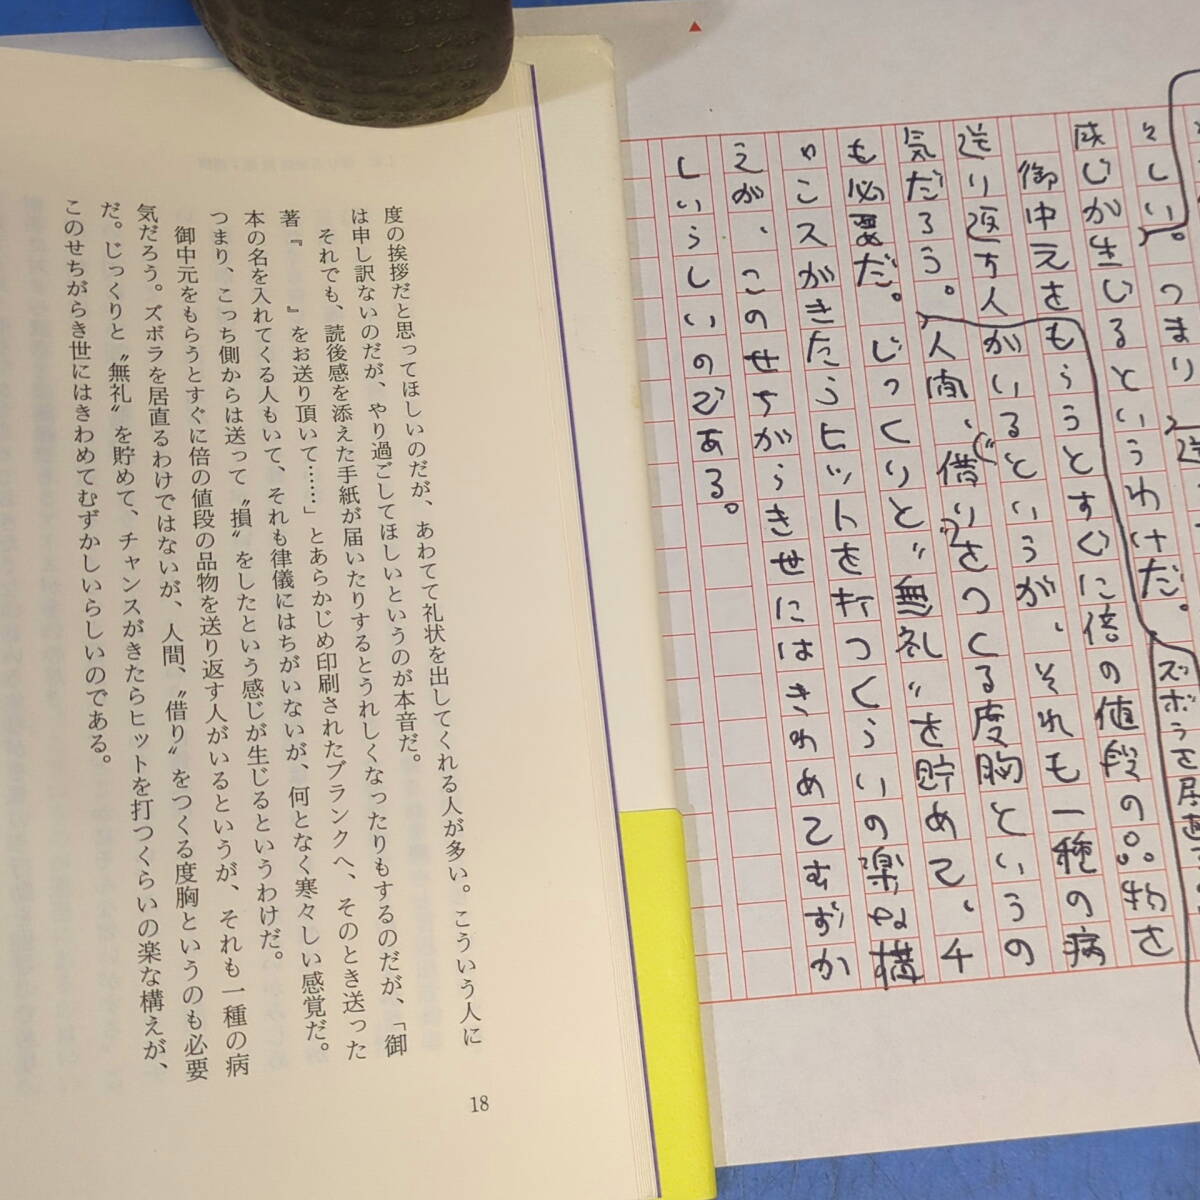 度の挨拶だと思ってほしいのだが、あわてて礼状を出してくれる人が多い。こういう人に
は申し訳ないのだが、やり過ごしてほしいというのが本音だ。
それでも、読後感を添えた手紙が届いたりするとうれしくなったりもするのだが、「御
著『　　』をお送り頂いて……」とあらかじめ印刷されたブランクへ、そのとき送った
本の名を入れてくる人もいて、それも律儀にはちがいないが、何となく寒々しい感覚だ。
つまり、こっち側からは送って〝損〟をしたという感じが生じるというわけだ。
御中元をもらうとすぐに倍の値段の品物を送り返す人がいるというが、それも一種の病
気だろう。ズボラを居直るわけではないが、人間、〝借り〟をつくる度胸というのも必要
だ。じっくりと〝無礼〟を貯めて、チャンスがきたらヒットを打つくらいの楽な構えが、
このせちがらき世にはきわめてむずかしいらしいのである。
18
々しい。つまり
感じが生じるというわけだ。
ズボラを居直る
御中元をもらうとすぐに倍の値段の品物を
送り返す人がいるというが、それも一種の病
気だろう。人間、〝借り〟をつくる度胸というの
も必要だ。じっくりと〝無礼〟を貯めて、チ
ャンスがきたらヒットを打つくらいの楽な構
えが、このせちがらき世にはきわめてむずか
しいらしいのである。